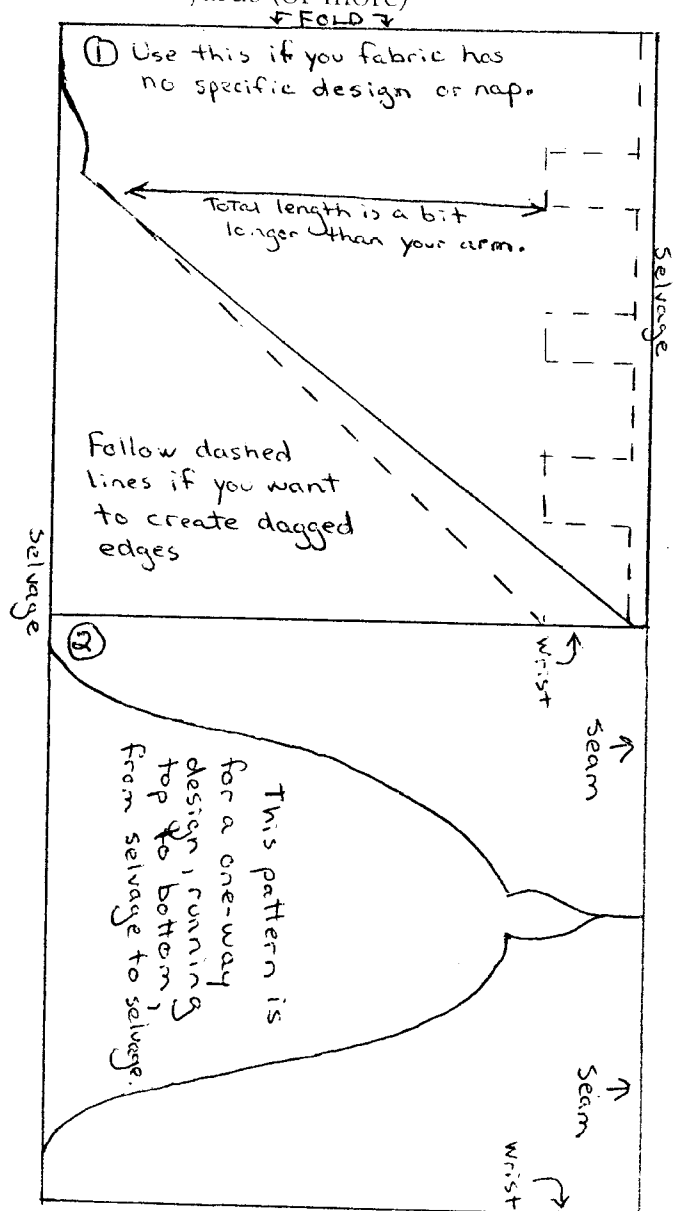 yards (or more)
← FOLD →
① Use this if you fabric has
no specific design or nap.
Total length is a bit
longer than your arm.
Selvage
Follow dashed
lines if you want
to create dagged
edges
Selvage
wrist
②
Seam
This pattern is
for a one-way
design, running
top to bottom,
from selvage to selvage.
Seam
wrist